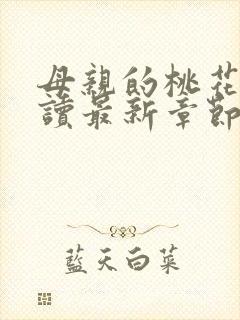 母親的桃花
讀最新章節
藍天白菜